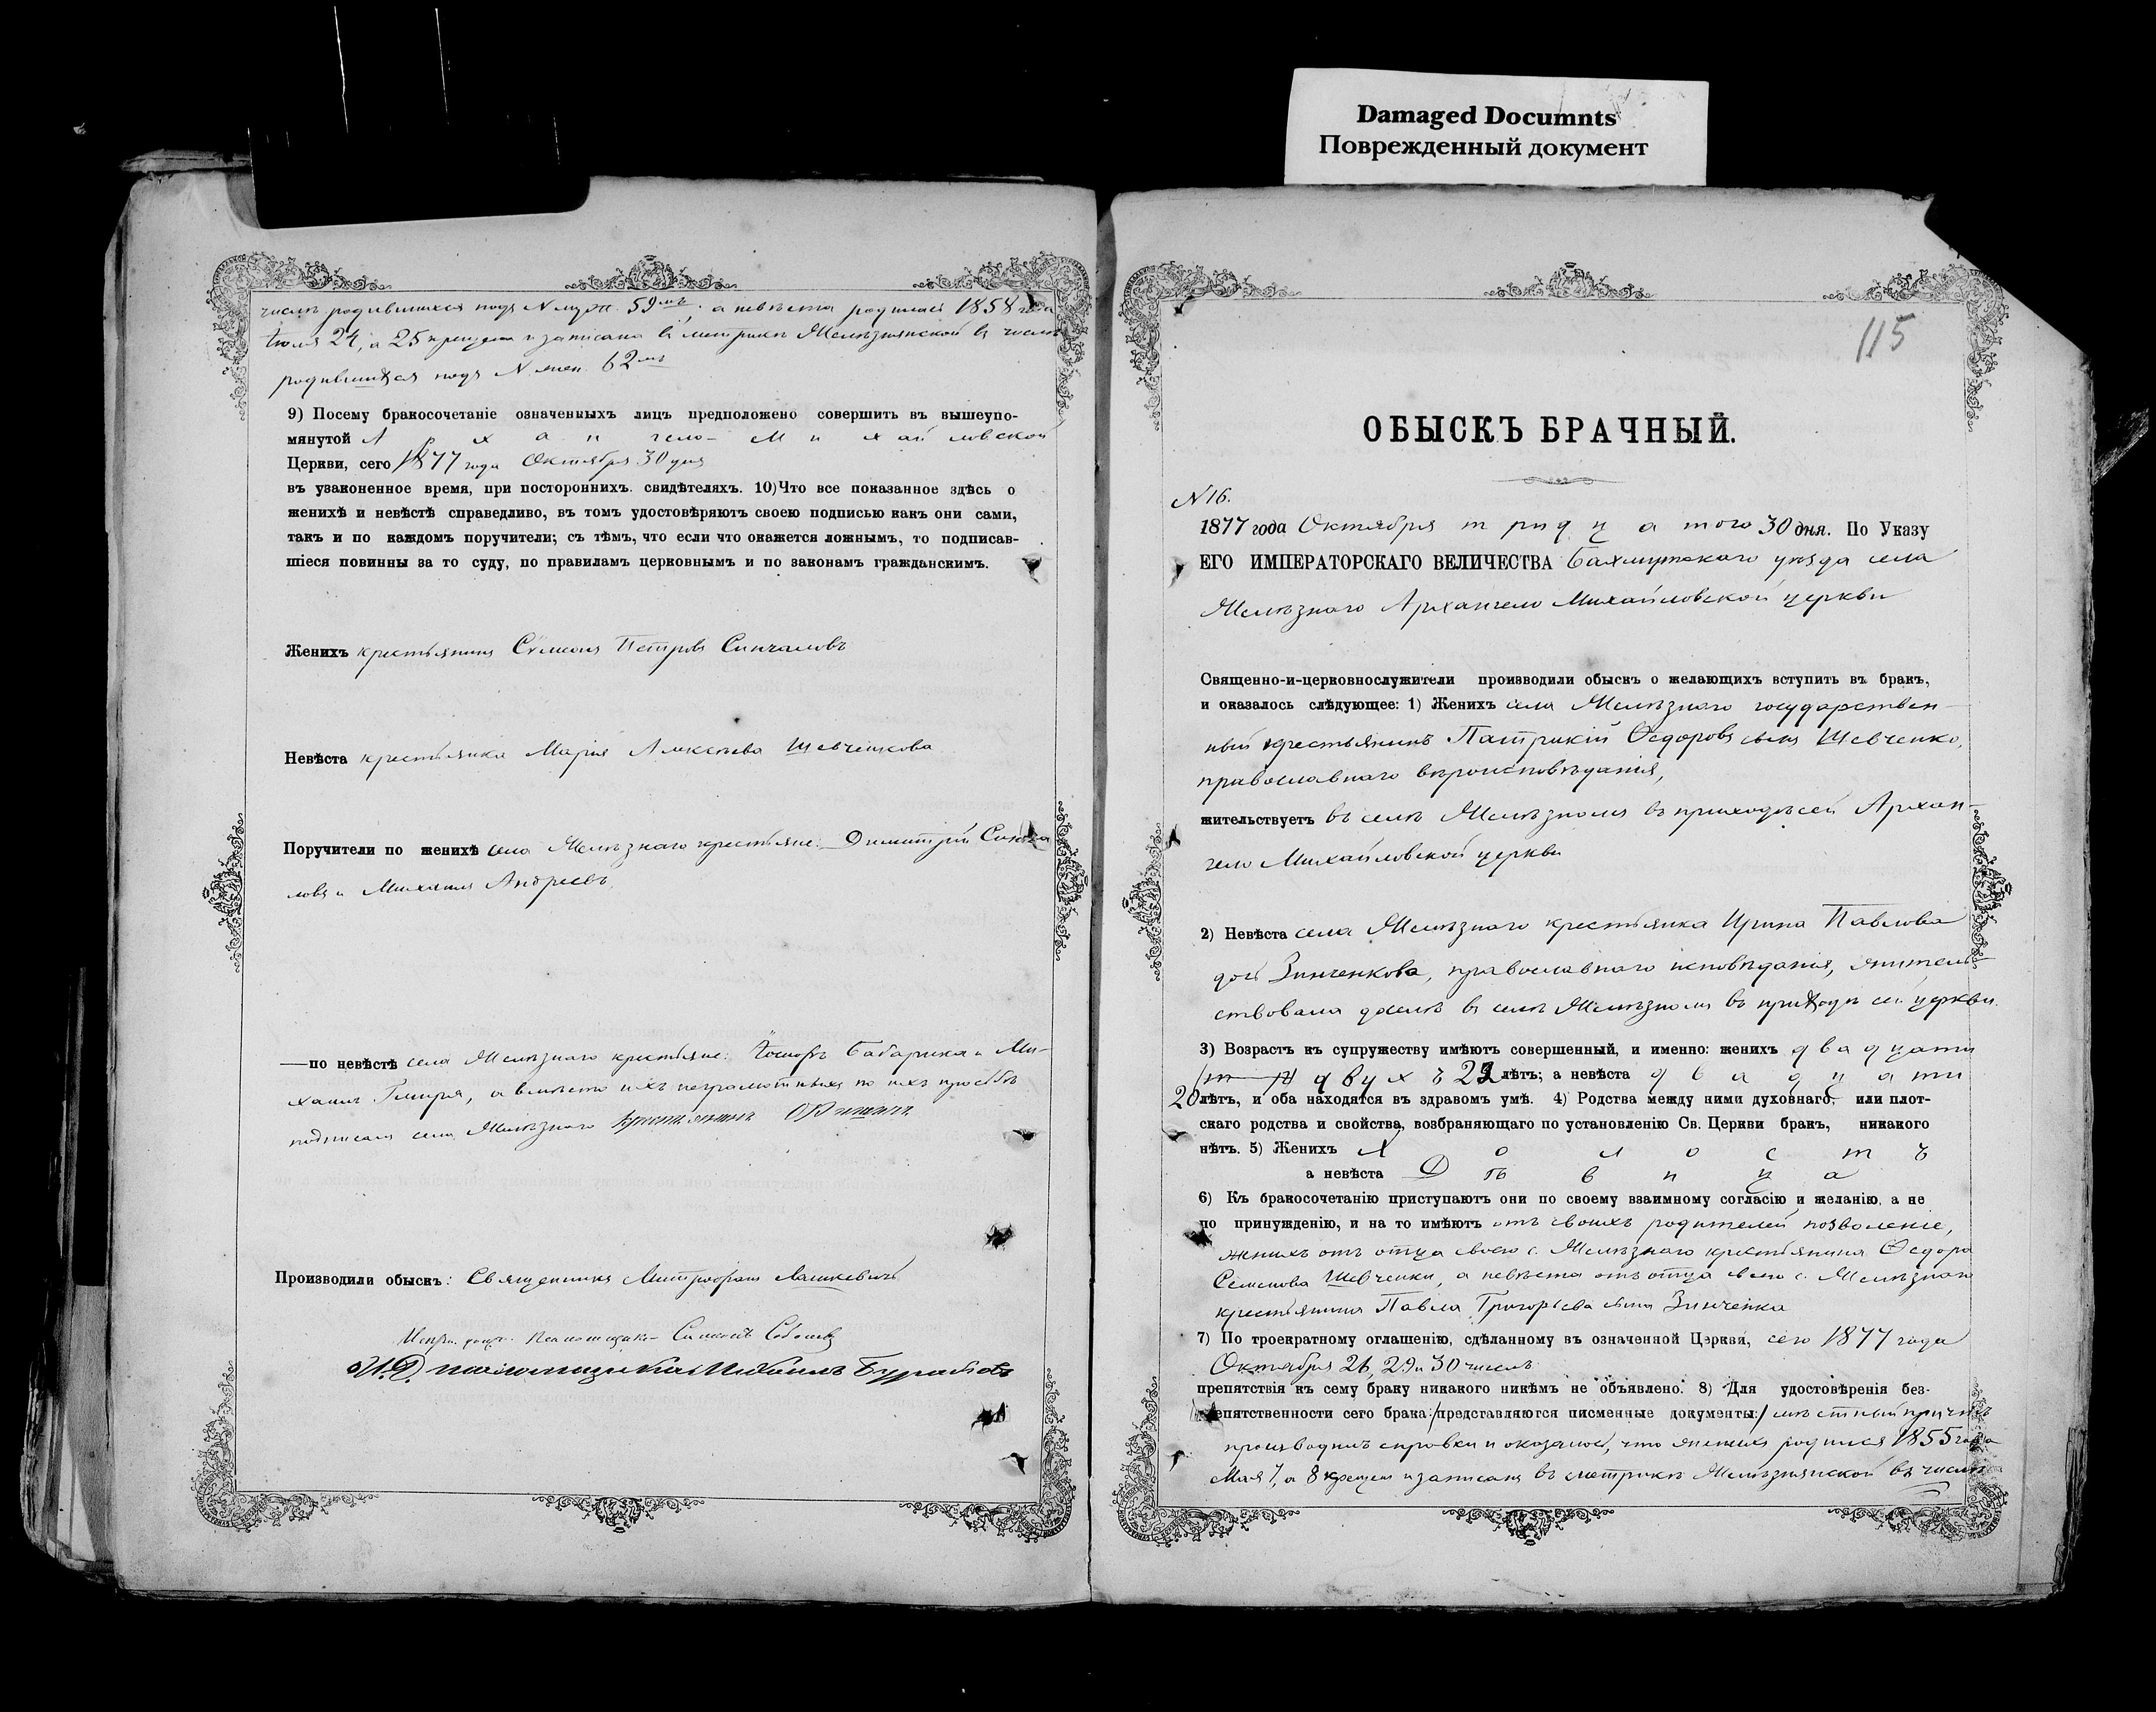 Damaged Documnts
Поврежденный документ
числѣ родившихся подъ № муж. 59мъ, а невѣста родилась 1858 года
Іюля 24, а 25 крещена и записана въ метрикѣ Желѣзнянской въ числѣ
родившихся подъ № жен. 62мъ
9) Посему бракосочетаніе означенныхъ лицъ предположено совершить въ вышеупо-
мянутой Архангело-Михайловской
Церкви, сего 1877 года Октября 30 дня
въ узаконенное время, при постороннихъ. свидѣтеляхъ. 10) Что все показанное здѣсь о
женихѣ и невѣстѣ справедливо, въ томъ удостовѣряютъ своею подписью какъ они сами,
такъ и по каждомъ поручители; съ тѣмъ, что если что окажется ложнымъ, то подписав-
шіеся повинны за то суду, по правиламъ церковнымъ и по законамъ гражданскимъ.
Женихъ крестьянинъ Сѵмеонъ Петровъ Синчаловъ
Невѣста крестьянка Марія Алексѣева Шевченкова
Поручители по женихѣ села Желѣзнаго крестьяне: Димитрій Синча
ловъ и Михаилъ Андреевъ,
—по невѣстѣ села Желѣзнаго крестьяне: Іосифъ Бабарика и Ми-
хаилъ Гмиря, а вмѣсто ихъ неграмотныхъ по ихъ просьбѣ
подписалъ села Желѣзнаго крестьянинъ
Производили обыскъ: Священникъ Митрофанъ Лашкевичъ
Испр. долж. Псаломщика Симеонъ
И. Д. псаломщика Михаилъ
115
ОБЫСКЪ БРАЧНЫЙ.
N 16.
1877 года Октября тридцатого 30 дня. По Указу
ЕГО ИМПЕРАТОРСКАГО ВЕЛИЧЕСТВА Бахмутскаго уѣзда села
Желѣзнаго Архангело Михайловской церкви
Священно-и-церковнослужители производили обыскъ о желающихъ вступить въ бракъ,
и оказалось слѣдующее: 1) Женихъ села Желѣзнаго государствен-
ный крестьянинъ Патрикій Ѳедоровъ сынъ Шевченко,
православнаго вѣроисповѣданія,
жительствуетъ въ селѣ Желѣзномъ въ приходѣ сей Архан-
гело Михайловской церкви
2) Невѣста села Желѣзнаго крестьянка Ирина Павлова
дочь Зинченкова, православнаго исповѣданія, житель-
ствовала доселѣ въ селѣ Желѣзномъ въ приходѣ сей церкви.
3) Возрастъ къ супружеству имѣютъ совершенный, и именно: женихъ двадцати
двухъ 22 лѣтъ; а невѣста двадцати
20 лѣтъ, и оба находятся въ здравомъ умѣ. 4) Родства между ними духовнаго, или плот-
скаго родства и свойства, возбраняющаго по установленію Св. Церкви бракъ, никакого
нѣтъ. 5) Женихъ Холостъ
а невѣста Дѣвица
6) Къ бракосочетанію приступаютъ они по своему взаимному согласію и желанію, а не
по принужденію, и на то имѣютъ отъ своихъ родителей позволеніе,
женихъ отъ отца своего с. Желѣзнаго крестьянина Ѳедора
Семенова Шевченки, а невѣста отъ отца своего с. Желѣзнаго
крестьянина Павла Григорьева сына Зинченка
7) По троекратному оглашенію, сдѣланному въ означенной Церкви, сего 1877 года
Октября 26, 29 и 30 числъ
препятствія къ сему браку никакого никѣмъ не объявлено. 8) Для удостовѣренія без-
епятственности сего брака:/представляются писменные документы:/ мѣстный причтъ
производилъ справки и оказалось, что женихъ родился 1855 года
Мая 7, а 8 крещенъ и записанъ въ метрикѣ Желѣзнянской въ числѣ